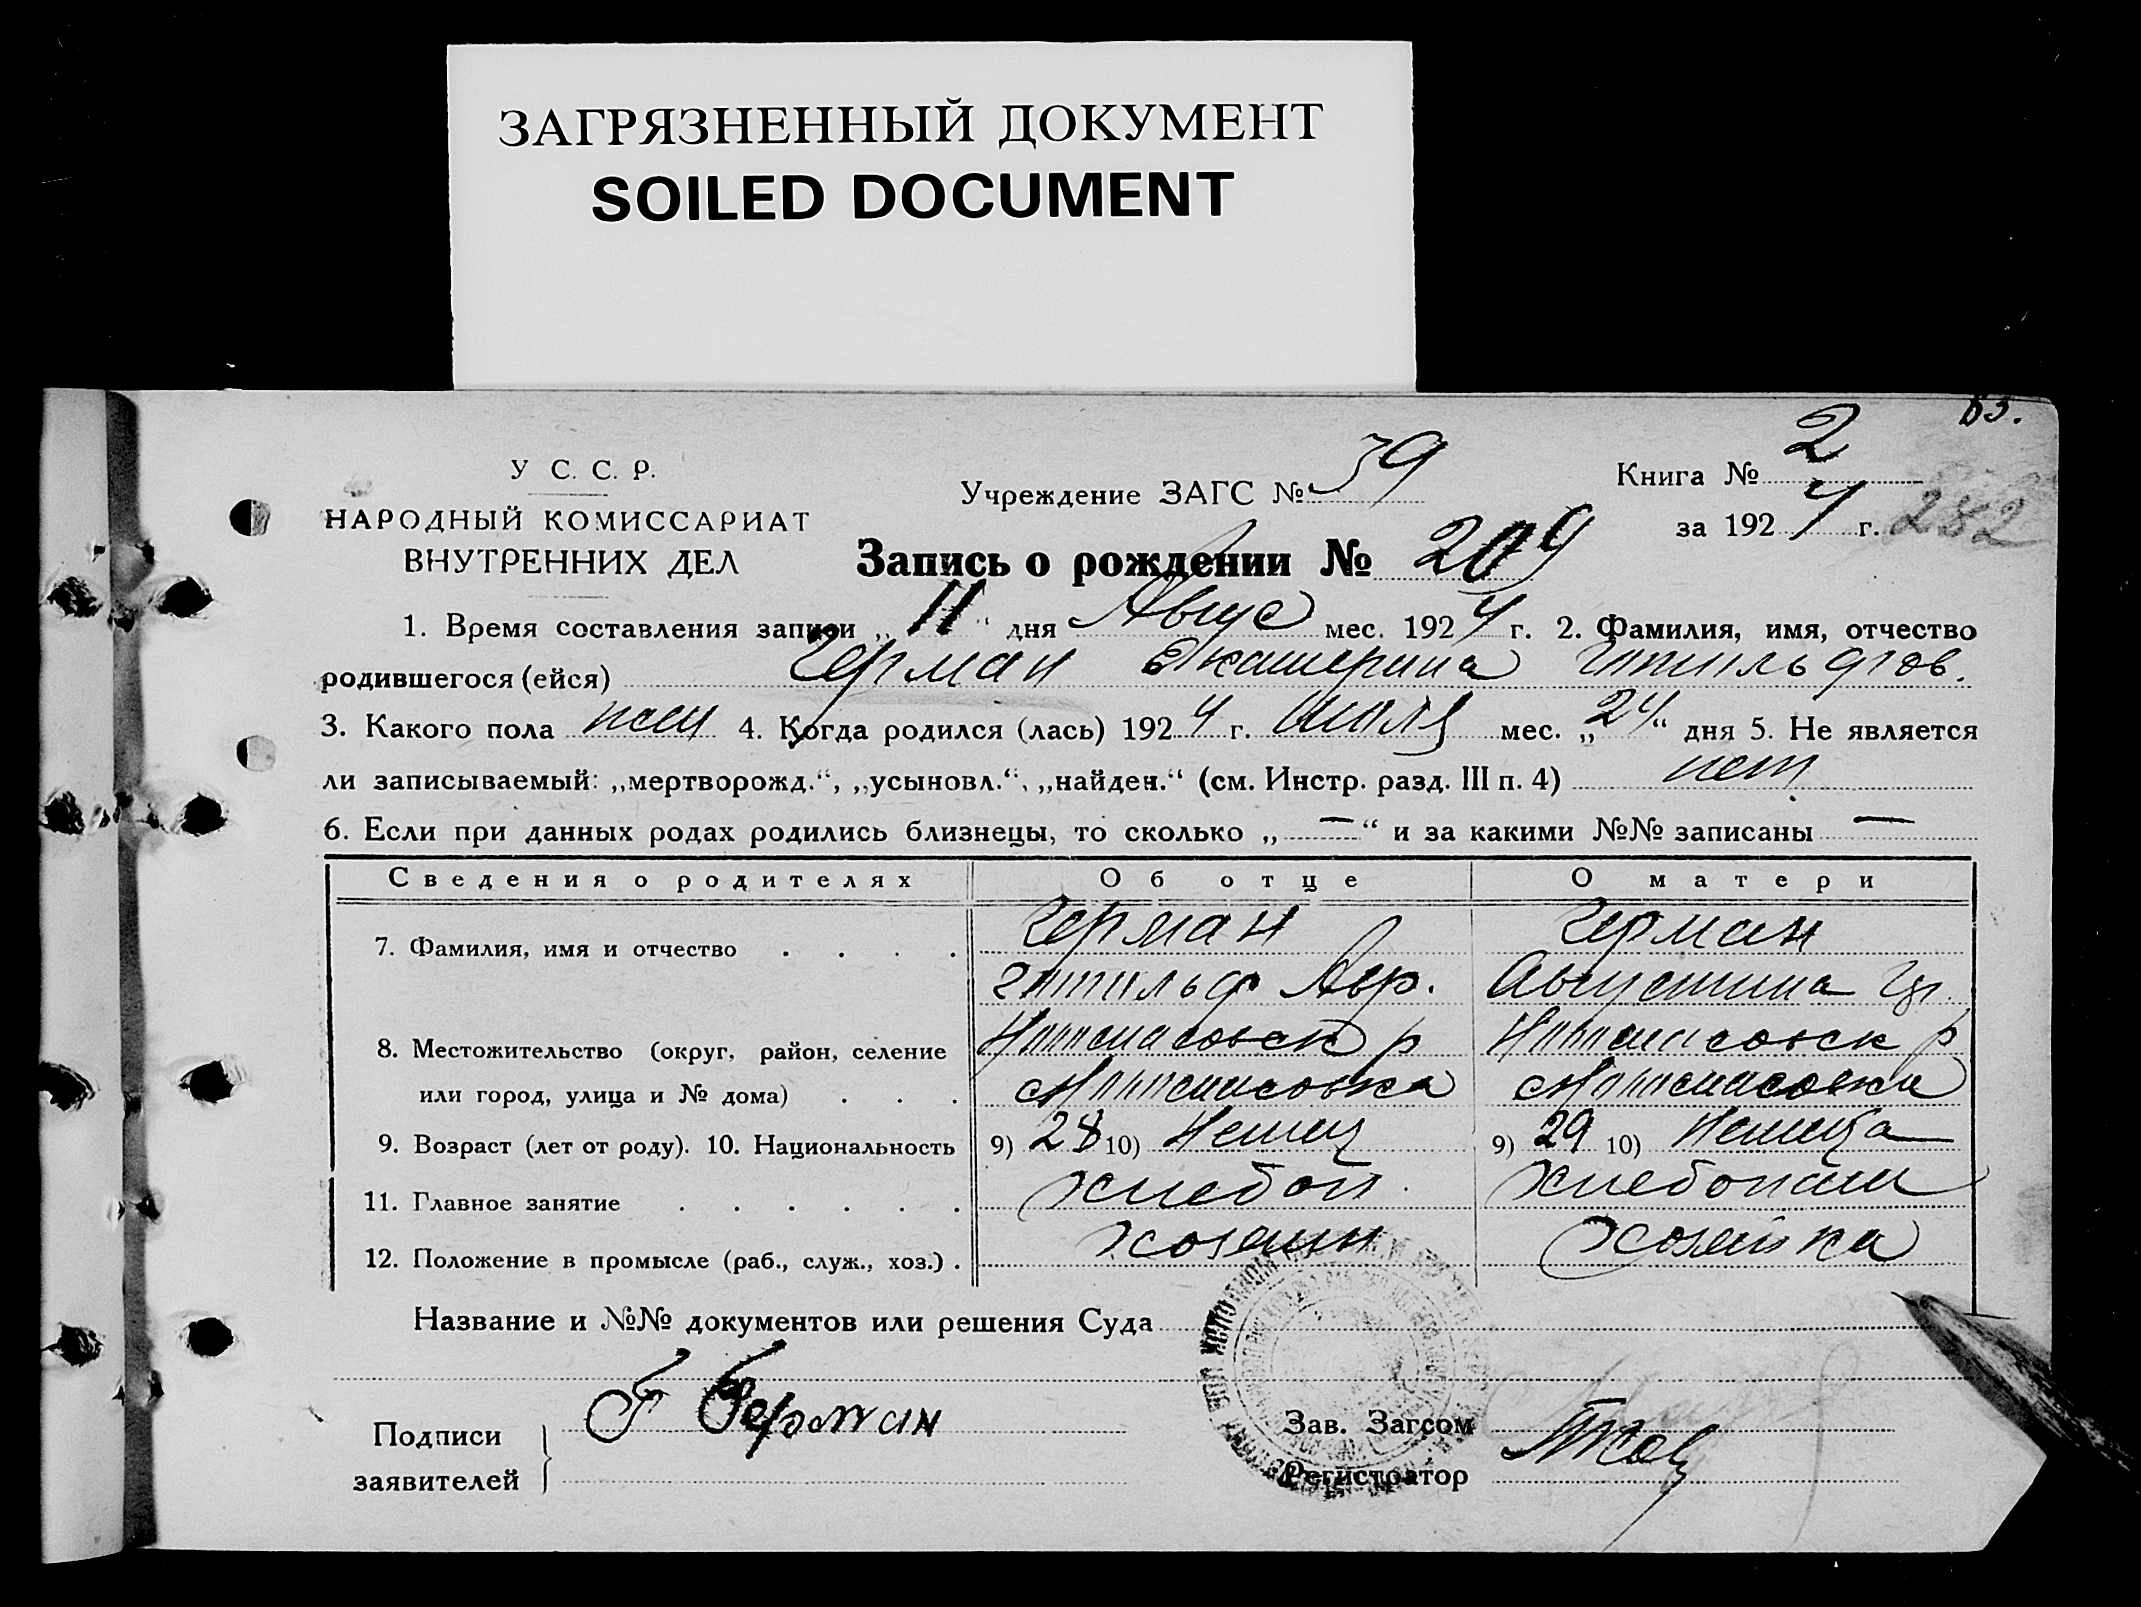 ЗАГРЯЗНЕННЫЙ ДОКУМЕНТ
SOILED DOCUMENT
У С. С. Р.
НАРОДНЫЙ КОМИССАРИАТ
ВНУТРЕННИХ ДЕЛ
Учреждение ЗАГС № 39
Книга № 2
за 192 4 г. 282
Запись о рождении № 209
1. Время составления записи „ 11 “ дня Авгус мес. 192 4 г. 2. Фамилия, имя, отчество
родившегося (ейся) Герман Екатерина
3. Какого пола жен 4. Когда родился (лась) 192 4 г. Июля мес. „ 24 “ дня 5. Не является
ли записываемый: „мертворожд.“, „усыновл.“, „найден.“ (см. Инстр. разд. III п. 4) нет
6. Если при данных родах родились близнецы, то сколько „ — “ и за какими №№ записаны —
Сведения о родителях Об отце О матери
7. Фамилия, имя и отчество . . . . Герман Герман
Августина
8. Местожительство (округ, район, селение
или город, улица и № дома) . . .
9. Возраст (лет от роду). 10. Национальность 9) 28 10) Немец 9) 29 10) Немка
11. Главное занятие . . . . . . Хлебоп. Хлебопаш
12. Положение в промысле (раб., служ., хоз.) . Хозяин Хозяйка
Название и №№ документов или решения Суда
Подписи
заявителей
Г Герман
Зав. Загсом
Регистратор